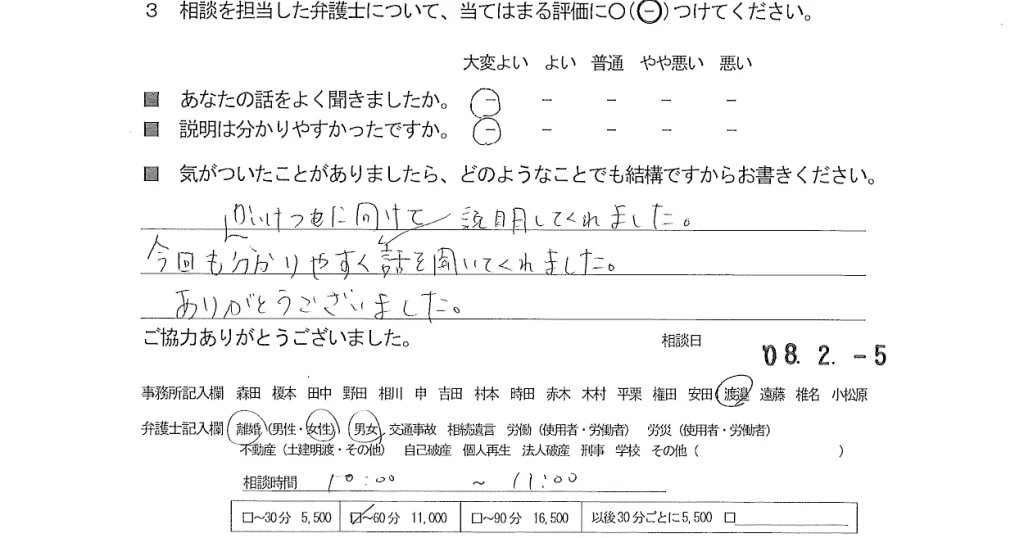 3 相談を担当した弁護士について、当てはまる評価に○(⊖)つけてください。
大変よい よい 普通 やや悪い 悪い
■ あなたの話をよく聞きましたか。 − − − − −
■ 説明は分かりやすかったですか。 − − − − −
■ 気がついたことがありましたら、どのようなことでも結構ですからお書きください。
かいけつもに向けて 説明してくれました。
今回も分かりやすく話を聞いてくれました。
ありがとうございました。
ご協力ありがとうございました。
相談日 '08. 2. -5
事務所記入欄 森田 榎本 田中 野田 相川 申 吉田 村本 時田 赤木 木村 平栗 権田 安田 渡邉 遠藤 椎名 小松原
弁護士記入欄 離婚 (男性・女性) 男女 交通事故 相続遺言 労働 (使用者・労働者) 労災 (使用者・労働者)
不動産 (土建明渡・その他) 自己破産 個人再生 法人破産 刑事 学校 その他 ( )
相談時間 10:00 ~ 11:00
□~30分 5,500 ☑~60分 11,000 □~90分 16,500 以後30分ごとに5,500 □